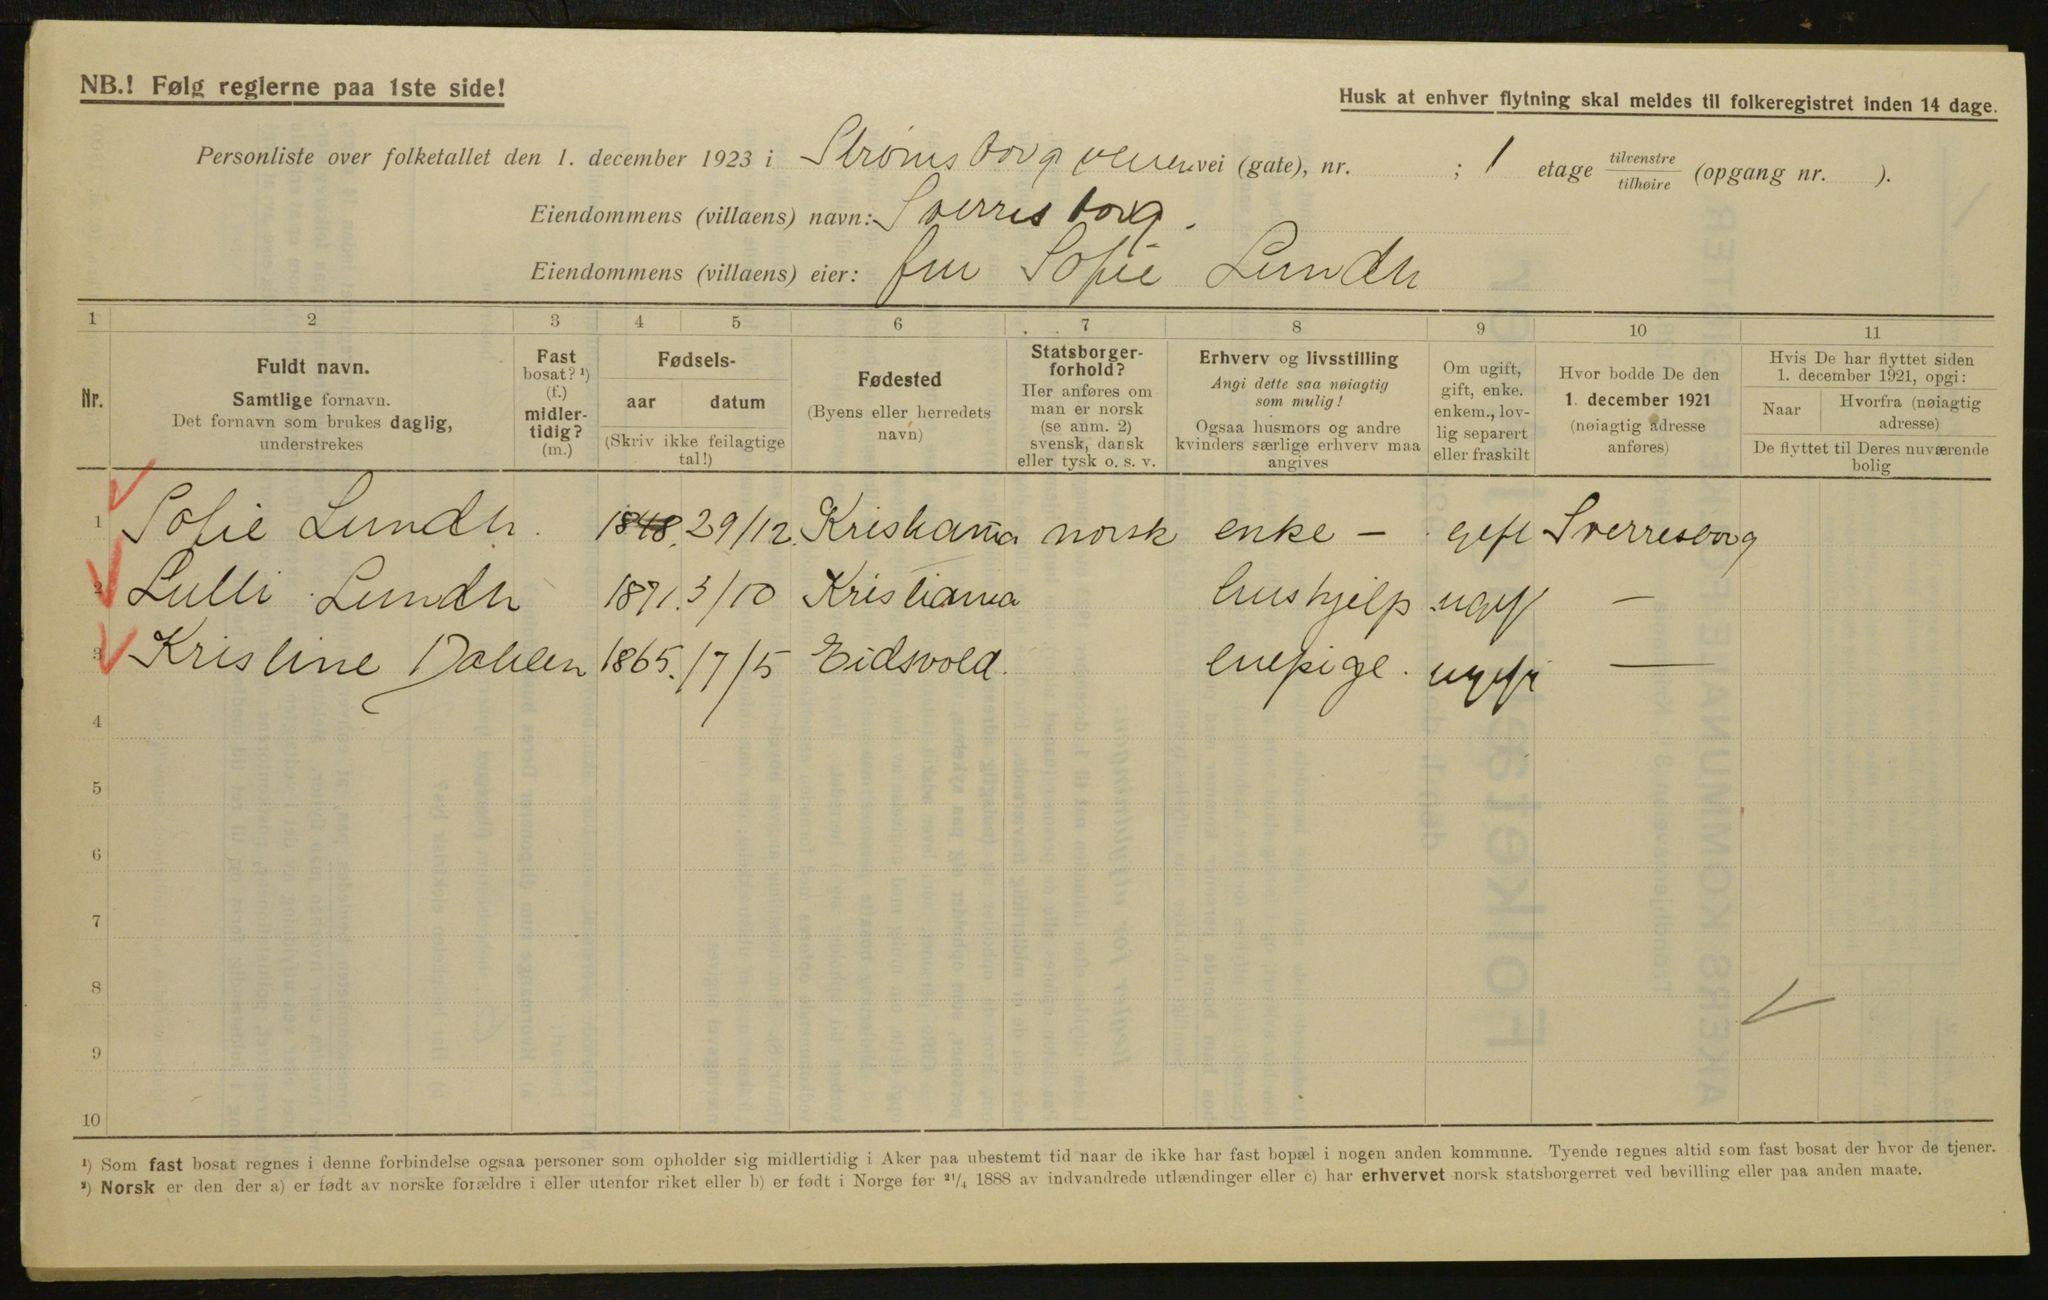 NB.! Følg reglerne paa 1ste side!
Husk at enhver flytning skal meldes til folkeregistret inden 14 dage.
Personliste over folketallet den 1. december 1923 i Strømsborgveien vei (gate), nr. ; 1 etage tilvenstre tilhøire (opgang nr. ).
Eiendommens (villaens) navn: Sverresborg.
Eiendommens (villaens) eier: fru Sofie Lundh
1 2 3 4 5 6 7 8 9 10 11
Nr.
Fuldt navn.
Samtlige fornavn.
Det fornavn som brukes daglig,
understrekes
Fast
bosat? ¹)
(f.)
midler-
tidig?
(m.)
Fødsels-
aar datum
(Skriv ikke feilagtige
tal!)
Fødested
(Byens eller herredets
navn)
Statsborger-
forhold?
Her anføres om
man er norsk
(se anm. 2)
svensk, dansk
eller tysk o. s. v.
Erhverv og livsstilling
Angi dette saa nøiagtig
som mulig!
Ogsaa husmors og andre
kvinders særlige erhverv maa
angives
Om ugift,
gift, enke.
enkem., lov-
lig separert
eller fraskilt
Hvor bodde De den
1. december 1921
(nøiagtig adresse
anføres)
Hvis De har flyttet siden
1. december 1921, opgi:
Naar
Hvorfra (nøiagtig
adresse)
De flyttet til Deres nuværende
bolig
1 Sofie Lundh. 1848. 29/12. Kristiania norsk enke – gift Sverresborg
2 Lulli Lundh 1871. 3/10 Kristiania hushjelp ugift —
3 Kristine Dahlen 1865. 17/5 Eidsvold. huspige. ugift —
4
5
6
7
8
9
10
¹) Som fast bosat regnes i denne forbindelse ogsaa personer som opholder sig midlertidig i Aker paa ubestemt tid naar de ikke har fast bopæl i nogen anden kommune. Tyende regnes altid som fast bosat der hvor de tjener.
²) Norsk er den der a) er født av norske forældre i eller utenfor riket eller b) er født i Norge før ²¹/₄ 1888 av indvandrede utlændinger eller c) har erhvervet norsk statsborgerret ved bevilling eller paa anden maate.